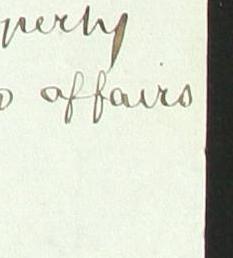 perty
affairs